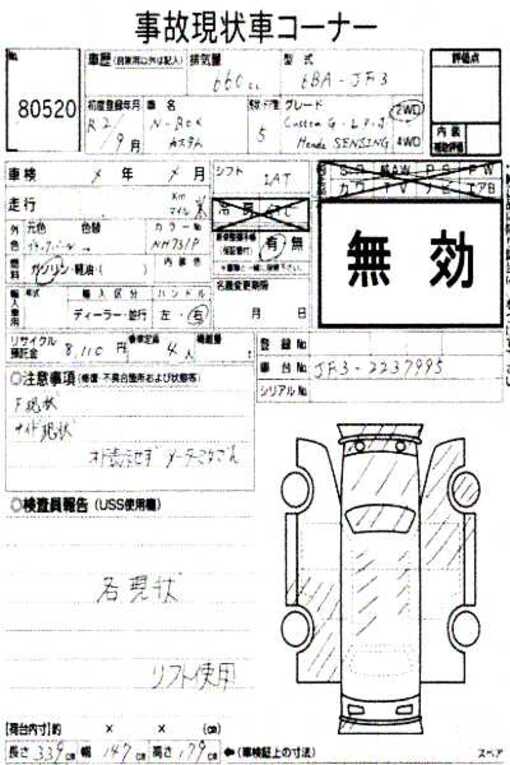 事故現状車コーナー
No. 80520
車歴 (自家用以外は記入) 排気量 型式 評価点
660cc 6BA-JF3
初度登録年月 車名 ドア数 グレード
R2/9月 N-BOX カスタム 5 Custom G・L 2WD
Honda SENSING 4WD
内装 補助評価
車検 × 年 × 月 シフト IAT
走行 Km マイル 冷房 A/C
外色 元色 色替 カラーNo. 有・無
NH731P
燃料 ガソリン・軽油・( ) 内装色
輸入車用 年式 輸入区分 ハンドル 名義変更期限
ディーラー・並行 左・右 月 日
S.R AW P.S P.W
カワ T.V ナビ エアB
無効
リサイクル預託金 8,110円 乗車定員 4人 積載量 t
登録No.
車台No. JF3-2237995
シリアルNo.
◎注意事項 (修復・不具合箇所および状態等)
F現状
サイド現状
◎検査員報告 (USS使用欄)
各現状
リフト使用
[荷台内寸]約 × × (cm)
長さ 339cm 幅 147cm 高さ 179cm ←(車検証上の寸法)
スペア